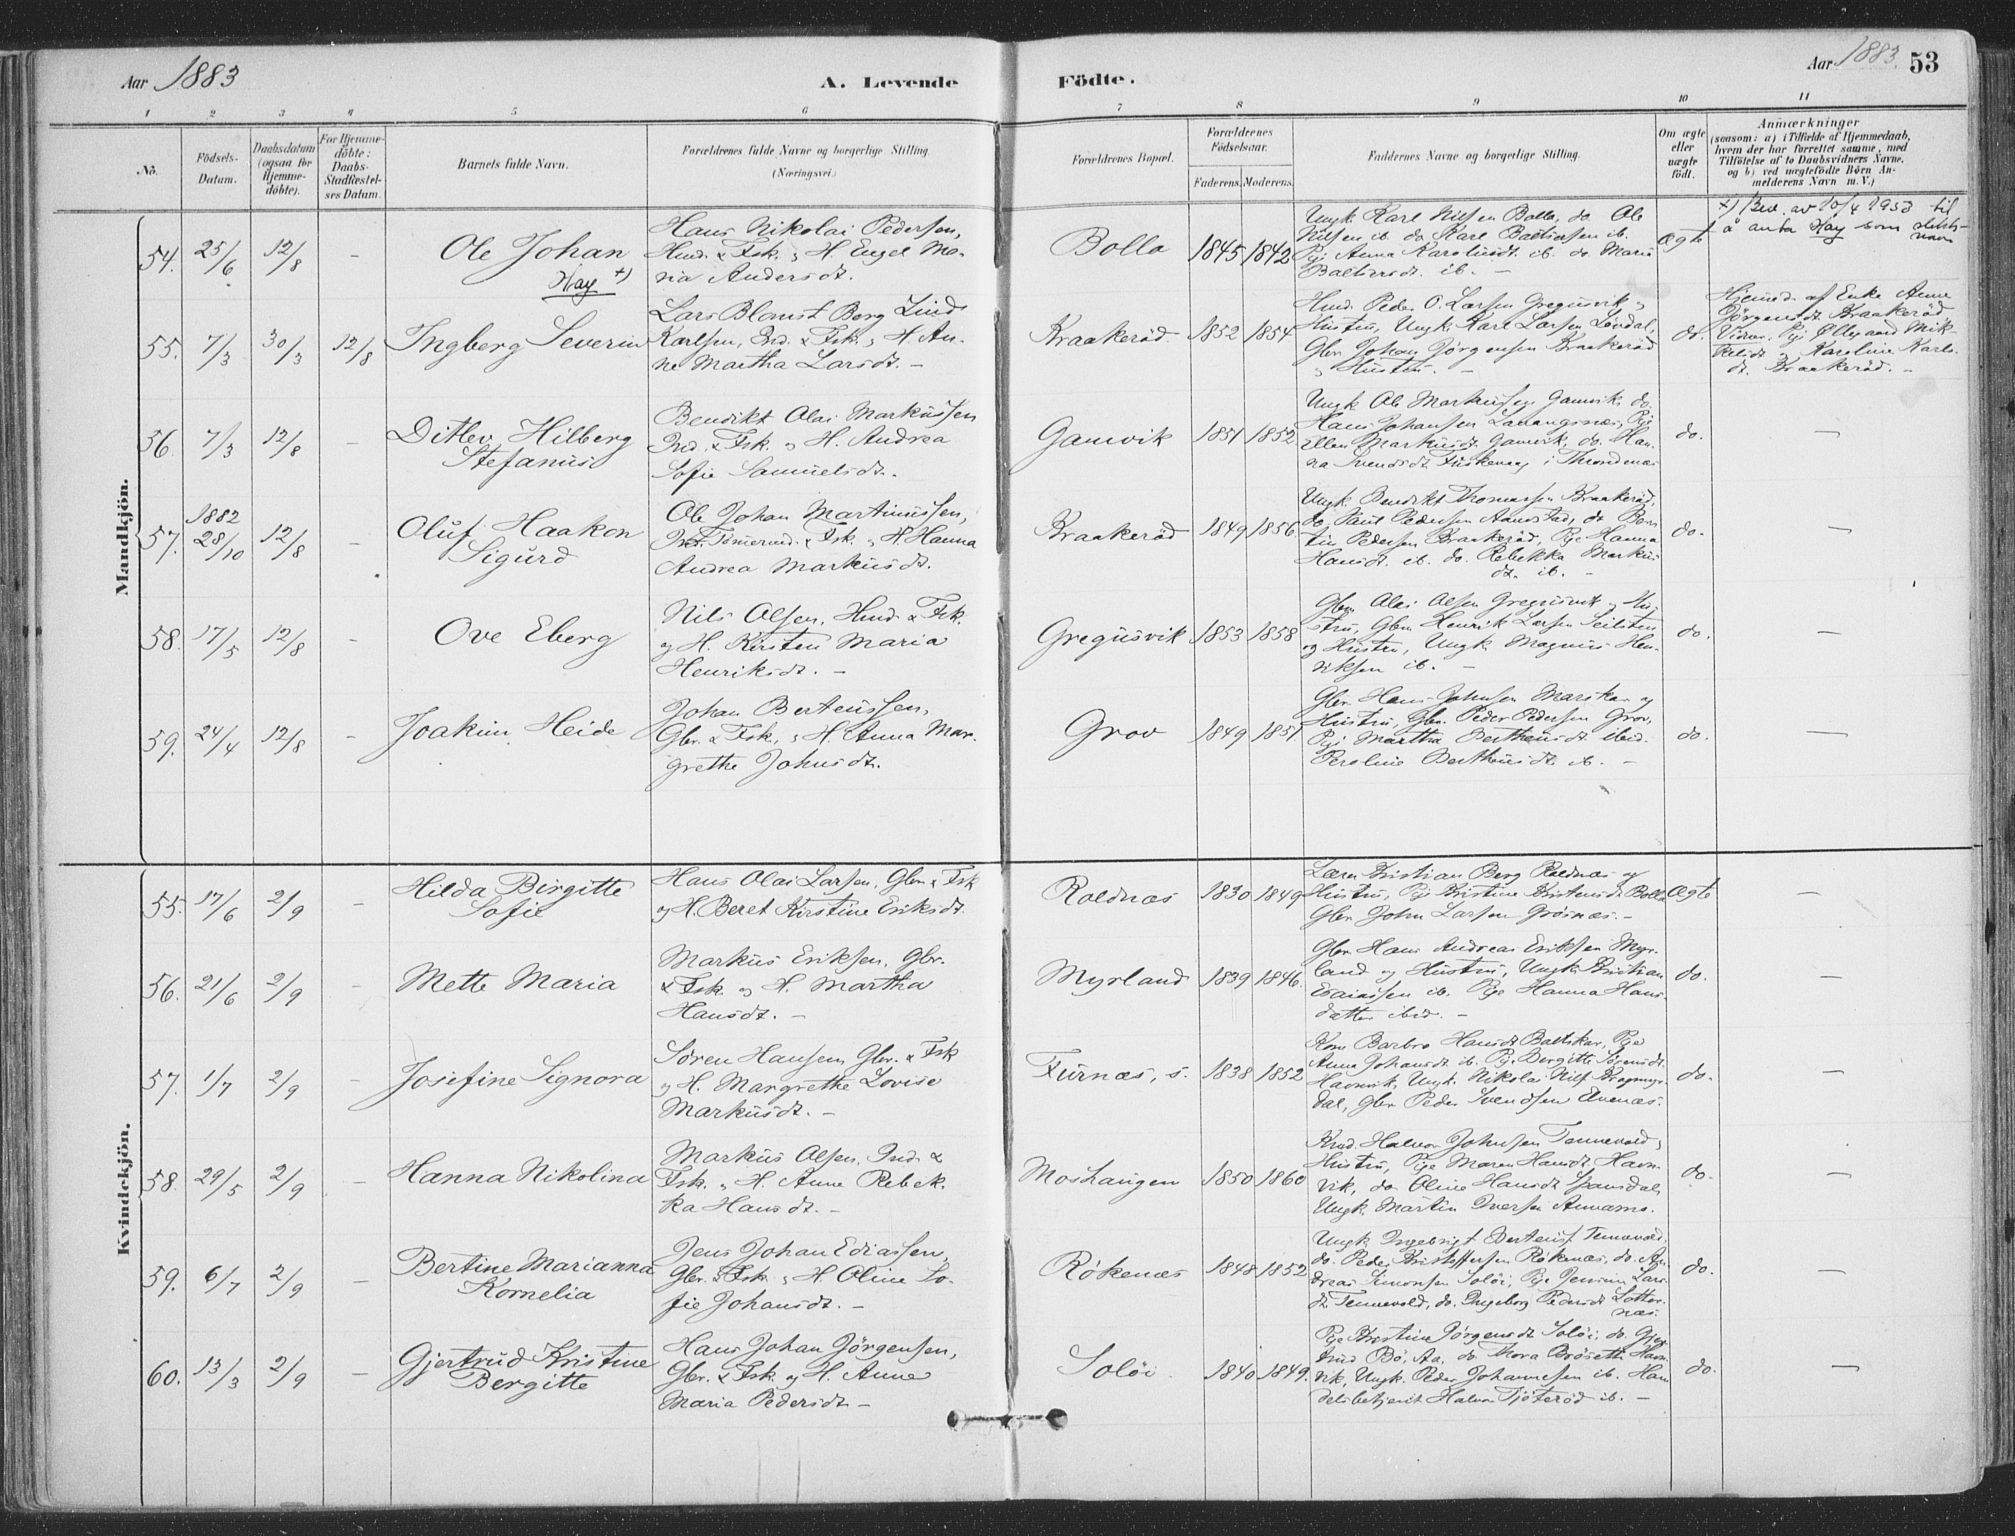 Aar 1883
A. Levende
Födte.
Aar 1883. 53
1 2 3 4 5 6 7 8 9 10 11
No.
Födsels-
Datum.
Daabsdatum
(ogsaa for
Hjemme-
döbte).
For Hjemme-
döbte:
Daabs-
Stadfæstel-
ses Datum.
Barnets fulde Navn.
Forældrenes fulde Navne og borgerlige Stilling.
(Næringsvei.)
Forældrenes Bopæl.
Forældrenes
Födselsaar.
Faderens. Moderens.
Faddernes Navne og borgerlige Stilling.
Om ægte
eller
uægte
födt.
Anmærkninger
(saasom: a) i Tilfælde af Hjemmedaab,
hvem der har forrettet samme, med
Tilföielse af to Daabsvidners Navne.
og b) ved uægtefödte Börn An-
melderens Navn m. V.)
Mandkjön.
54. 25/6 12/8 -
Ole Johan
Hay +)
Hans Nikolai Pedersen,
Hmd. & Fsk. & H. Engel Ma-
ria Andersdt.
Bolla 1845 1842
Ungk. Karl Nilsen Bolla, do. Ole
Nilsen ib. do Karl Baltsersen ib.
Pige Anna Karolusdt. ib. do Maria
Baltsersdt. ib. -
Ægte
+) Bev. av 10/4 1953 til
å anta Hay som slekts-
navn
55. 7/3 30/3 12/8
Ingberg Severin
Lars Blomst Borg Lind
Karlsen, Ind. & Fsk. & H. An-
ne Martha Larsdt. -
Kraakeröd 1852 1854
Hmd. Peder O. Larsen Gregusvik &
Hustru, Ungk. Karl Larsen
Gbr. Johan Jörgensen Kraakeröd
& Hustru. -
do.
Hjemmed. af Enke Anne
Jörgensdt. Kraakeröd
Vidner: Pige Ollegaard Mik-
kelsdt & Karoline Karls-
dt. Kraakeröd. -
56. 7/3 12/8 -
Ditlev Hilberg
Stefanus
Bendikt Olai Markussen
Ind. & Fsk. og H. Andrea
Sofie Samuelsdt.
Gamvik 1851 1852
Ungk. Ole Markussen Gamvik do.
Hans Johansen Lavangsnæs, Pige
Ellen Markusdt. Gamvik, do. Han-
na Svendsdt. Fuskevaag i Throndenæs
do. -
57. 1882
28/10 12/8 -
Oluf Haakon
Sigurd
Ole Johan Martinussen,
Ind. Tömermd. & Fsk. og H. Hanna
Andrea Markusdt.
Kraakeröd 1849 1856.
Ungk. Bendikt Thomassen Kraakeröd,
do. Paul Pedersen Aanstad, do
Pedersen Kraakeröd, Pige Hanna
Hansdt. ib. do. Rebekka Markus-
dt. ib. -
do. -
58. 17/5 12/8 -
Ove Eberg
Nils Olsen, Hmd. & Fsk.
og H. Kirsten Maria
Henriksdt. -
Gregusvik 1853 1858
Gbr. Olai Olsen Gregusvik & Hu-
stru, Gbr. Henrik Larsen
og Hustru, Ungk. Magnus Hen-
riksen ib. -
do. -
59. 24/4 12/8 -
Joakim Heide
Johan Berteussen,
Gbr. & Fsk. & H. Anna Mar-
grethe Johnsdt.
Grov 1849 1851
Gbr. Hans Johnsen Marskar og
Hustru, Gbr. Peder Pedersen Grov,
Pige Martha Bertheusdt. ibid.
Peroline Bertheusdt. ib. -
do. -
Kvindekjön.
55. 17/6 2/9 -
Hilda Birgitte
Sofie
Hans Olai Larsen, Gbr. & Fsk
og H. Beret Kirstine Eriksdt.
Roldnæs 1830 1849
Lærer Kristian Berg Roldnæs og
Hustru, Pige Kristine Kristensdt. Bolla
Gbr. John Larsen Grösnæs. -
Ægte -
56. 21/6 2/9 -
Mette Maria
Markus Eriksen, Gbr.
& Fsk. og H. Martha
Hansdt. -
Myrland 1839 1846.
Gbr. Hans Andreas Eriksen Myr-
land og Hustru, Ungk. Kristian
Esaiassen ib. Pige Hanna Hans-
datter ibid. -
do. -
57. 1/7 2/9 -
Josefine Signora
Sören Hansen, Gbr. & Fsk
og H. Margrethe Lovise
Markusdt. -
Furnæs, s. 1838 1852
Kone Barbro Hansdt. Baltskar, Pige
Anna Johansdt. ib. Pige Bergitte Sörensdt.
Havnvik, Ungk. Nikolai Nils.
dal, Gbr. Peder Svendsen Avenæs.
do. -
58. 29/5 2/9 -
Hanna Nikolina
Markus Olsen, Ind. &
Fsk. & H. Anne Rebek-
ka Hansdt. -
Moshaugen 1850 1860
Hmd. Halvor Johnsen Tennevold &
Hustru, Pige Maren Hansdt. Havn-
vik, do Oline Hansdt Spansdal,
Ungk. Martin Iversen
do. -
59. 6/7 2/9 -
Bertine Marianna
Kornelia
Jens Johan Ediassen,
Gbr. & Fsk. & H. Oline So-
fie Johansdt. -
Rökenæs 1848 1852
Ungk. Ingebrigt Berteus. Tennevold,
do. Peder Kristoffersen Rökenæs, do. An-
dreas Simonsen Solöi, Pige Jensine Lars-
dt. Tennevold, do. Ingeborg Pedersdt.
do. -
60. 13/3 2/9 -
Gjertrud Kristine
Bergitte
Hans Johan Jörgensen,
Gbr. & Fsk. og H. Anne
Maria Pedersdt. -
Solöi 1840 1849.
Pige Kristine Jörgensdt Solöi, do. Gjer-
trud Bö, do. Thora Bröseth Havn-
vik, Ungk. Peder Johannesen ib. Han-
delsbetjent Halvor Tjöteröd ib. -
do. -